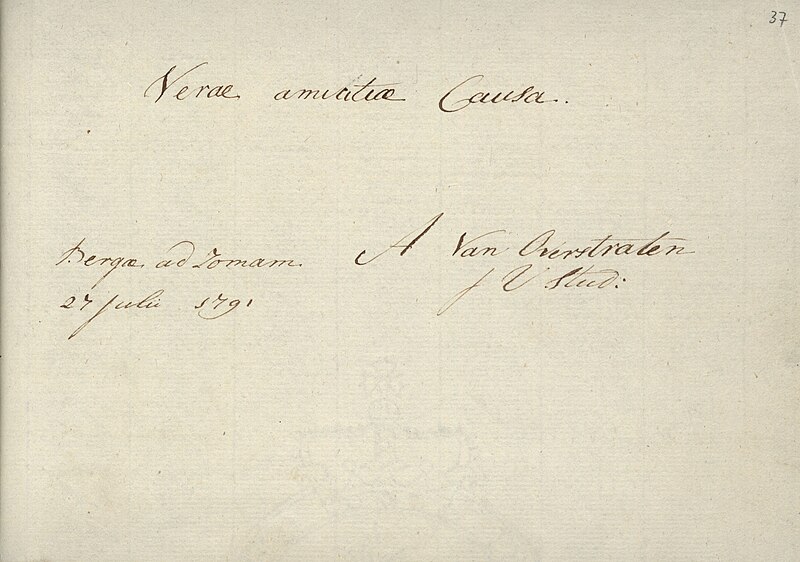 37
Verae amicitiae Causa.
Bergae ad Zomam
27 Julii 1791
A Van Overstraten
J V Stud: